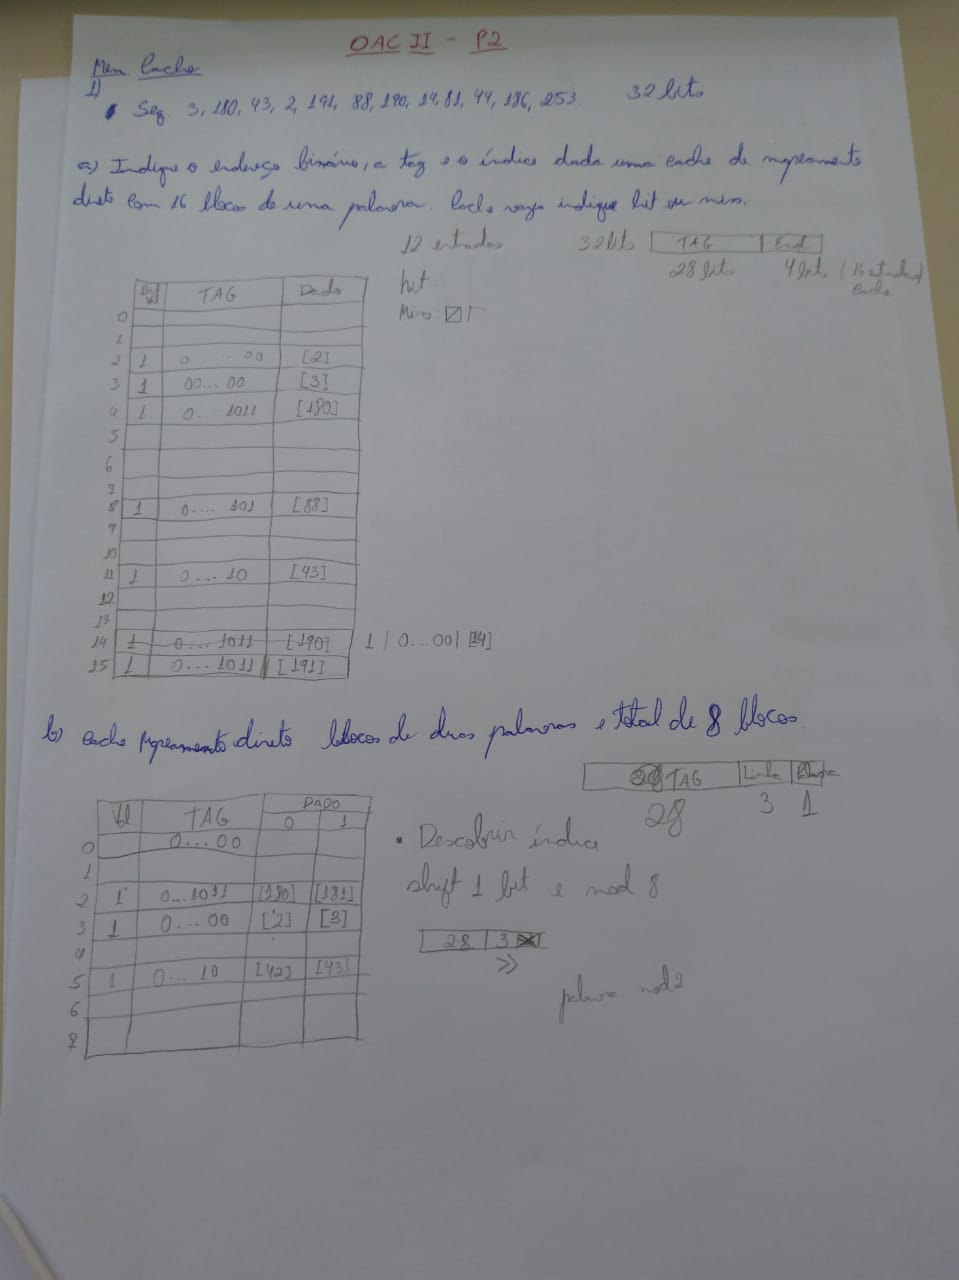 OAC II - P2
Mem. Cache
1)
• Seq. 3, 180, 43, 2, 191, 88, 190, 14, 81, 44, 186, 253. 32 bits
a) Indique o endereço binário, a tag e o índice dada uma cache de mapeamento
direto com 16 blocos de uma palavra. Cache vazia indique hit ou miss.
12 entradas 32 bits TAG End
28 bits 4 bits (16 entradas)
cache
hit
Miss:
Val TAG Dado
0
1
2 1 0...00 [2]
3 1 00...00 [3]
4 1 0...1011 [180]
5
6
7
8 1 0....101 [88]
9
10
11 1 0...10 [43]
12
13
14 1 0...1011 [190] 1 | 0...00 | [14]
15 1 0...1011 [191]
b) cache mapeamento direto blocos de duas palavras e total de 8 blocos.
TAG Linha Palavra
28 3 1
Val TAG DADO
0 1
0 0...00
1
2 1 0...1011 [180] [181]
3 1 0...00 [2] [3]
4
5 1 0...10 [42] [43]
6
7
• Descobrir índice
shift 1 bit e mod 8
28 3
>>
palavra mod 2